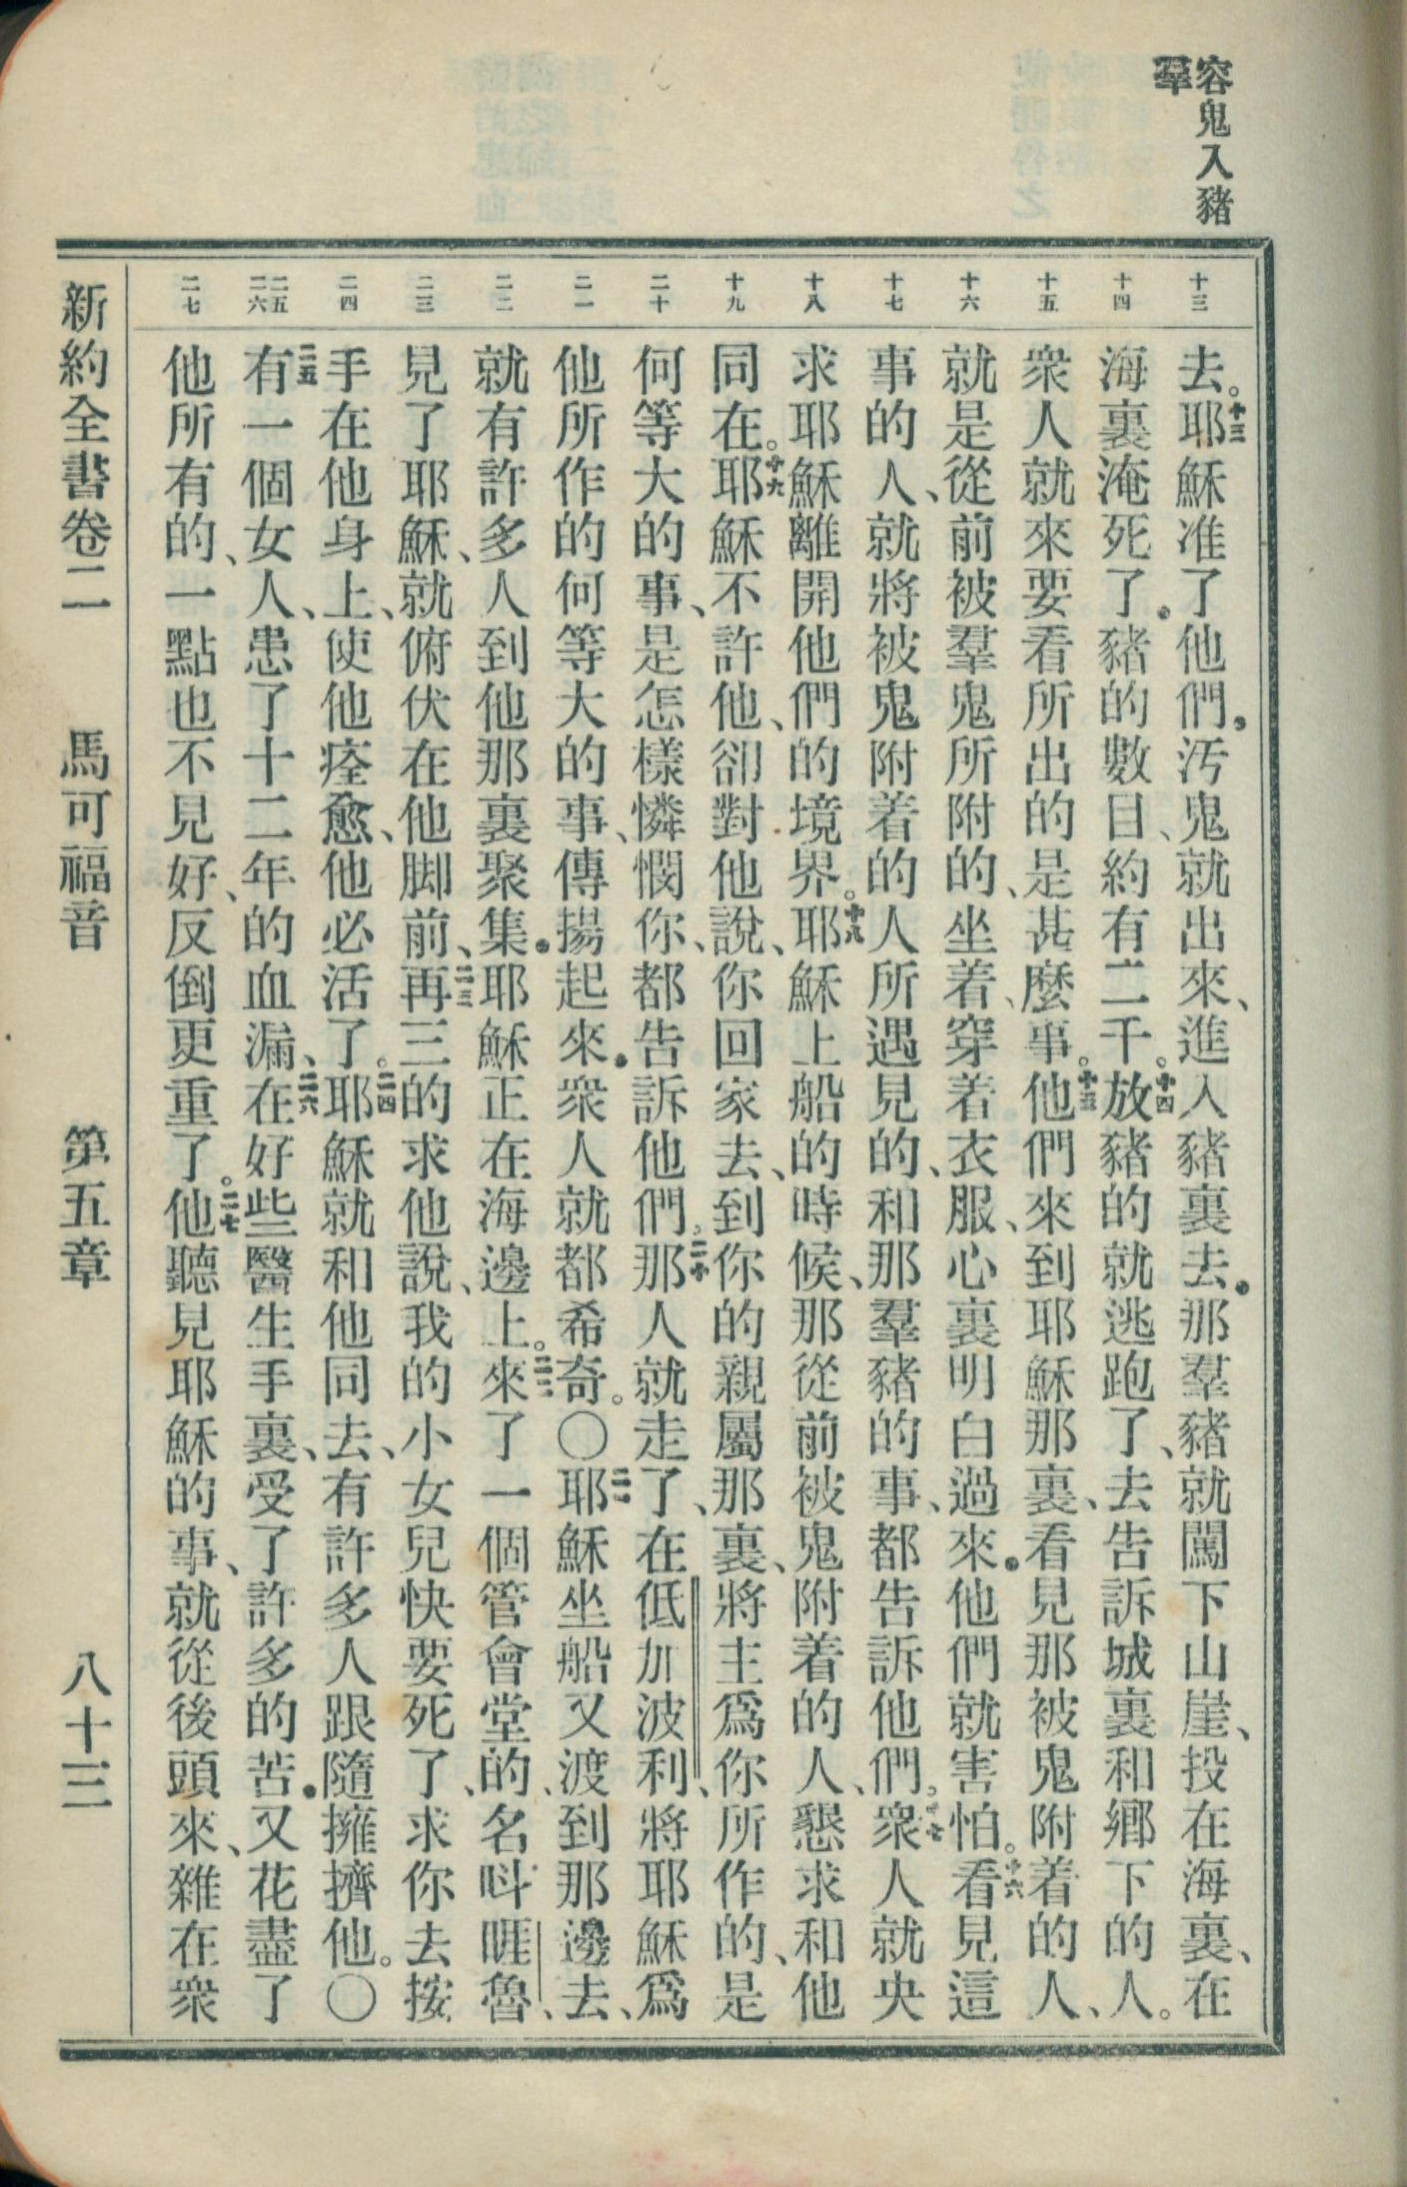 容鬼入豬
羣
十三
十四
十五
十六
十七
十八
十九
二十
二一
二二
二三
二四
二五
二六
二七
去。十三耶穌准了他們．汚鬼就出來、進入豬裏去．那羣豬就闖下山崖、投在海裏、在
海裏淹死了．豬的數目、約有二千。十四放豬的就逃跑了、去告訴城裏和鄉下的人。
衆人就來要看所出的是甚麼事。十五他們來到耶穌那裏、看見那被鬼附着的人、
就是從前被羣鬼所附的、坐着、穿着衣服、心裏明白過來．他們就害怕。十六看見這
事的人、就將被鬼附着的人所遇見的、和那羣豬的事、都告訴他們。十七衆人就央
求耶穌離開他們的境界。十八耶穌上船的時候、那從前被鬼附着的人、懇求和他
同在。十九耶穌不許他、卻對他說、你回家去、到你的親屬那裏、將主爲你所作的、是
何等大的事、是怎樣憐憫你、都告訴他們。二十那人就走了、在低加波利、將耶穌爲
他所作的何等大的事、傳揚起來．衆人就都希奇。〇二一耶穌坐船又渡到那邊去、
就有許多人到他那裏聚集．耶穌正在海邊上。二二來了一個管會堂的、名呌睚魯、
見了耶穌、就俯伏在他脚前、二三再三的求他說、我的小女兒快要死了、求你去按
手在他身上、使他痊愈、他必活了。二四耶穌就和他同去、有許多人跟隨擁擠他。〇
二五有一個女人、患了十二年的血漏、二六在好些醫生手裏、受了許多的苦．又花盡了
他所有的、一點也不見好、反倒更重了。二七他聽見耶穌的事、就從後頭來、雜在衆
新約全書卷二 馬可福音 第五章 八十三